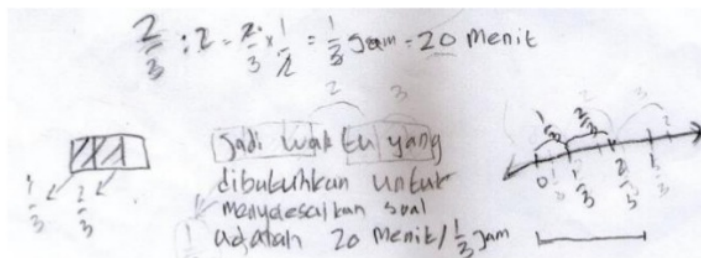 2/3 : 2 = 2/3 x 1/2 = 1/3 jam = 20 Menit
1/3 2/3
Jadi waktu yang
dibutuhkan untuk
menyelesaikan soal
adalah 20 Menit/1/3 jam
1/3 2/3
0 1/3 2/3